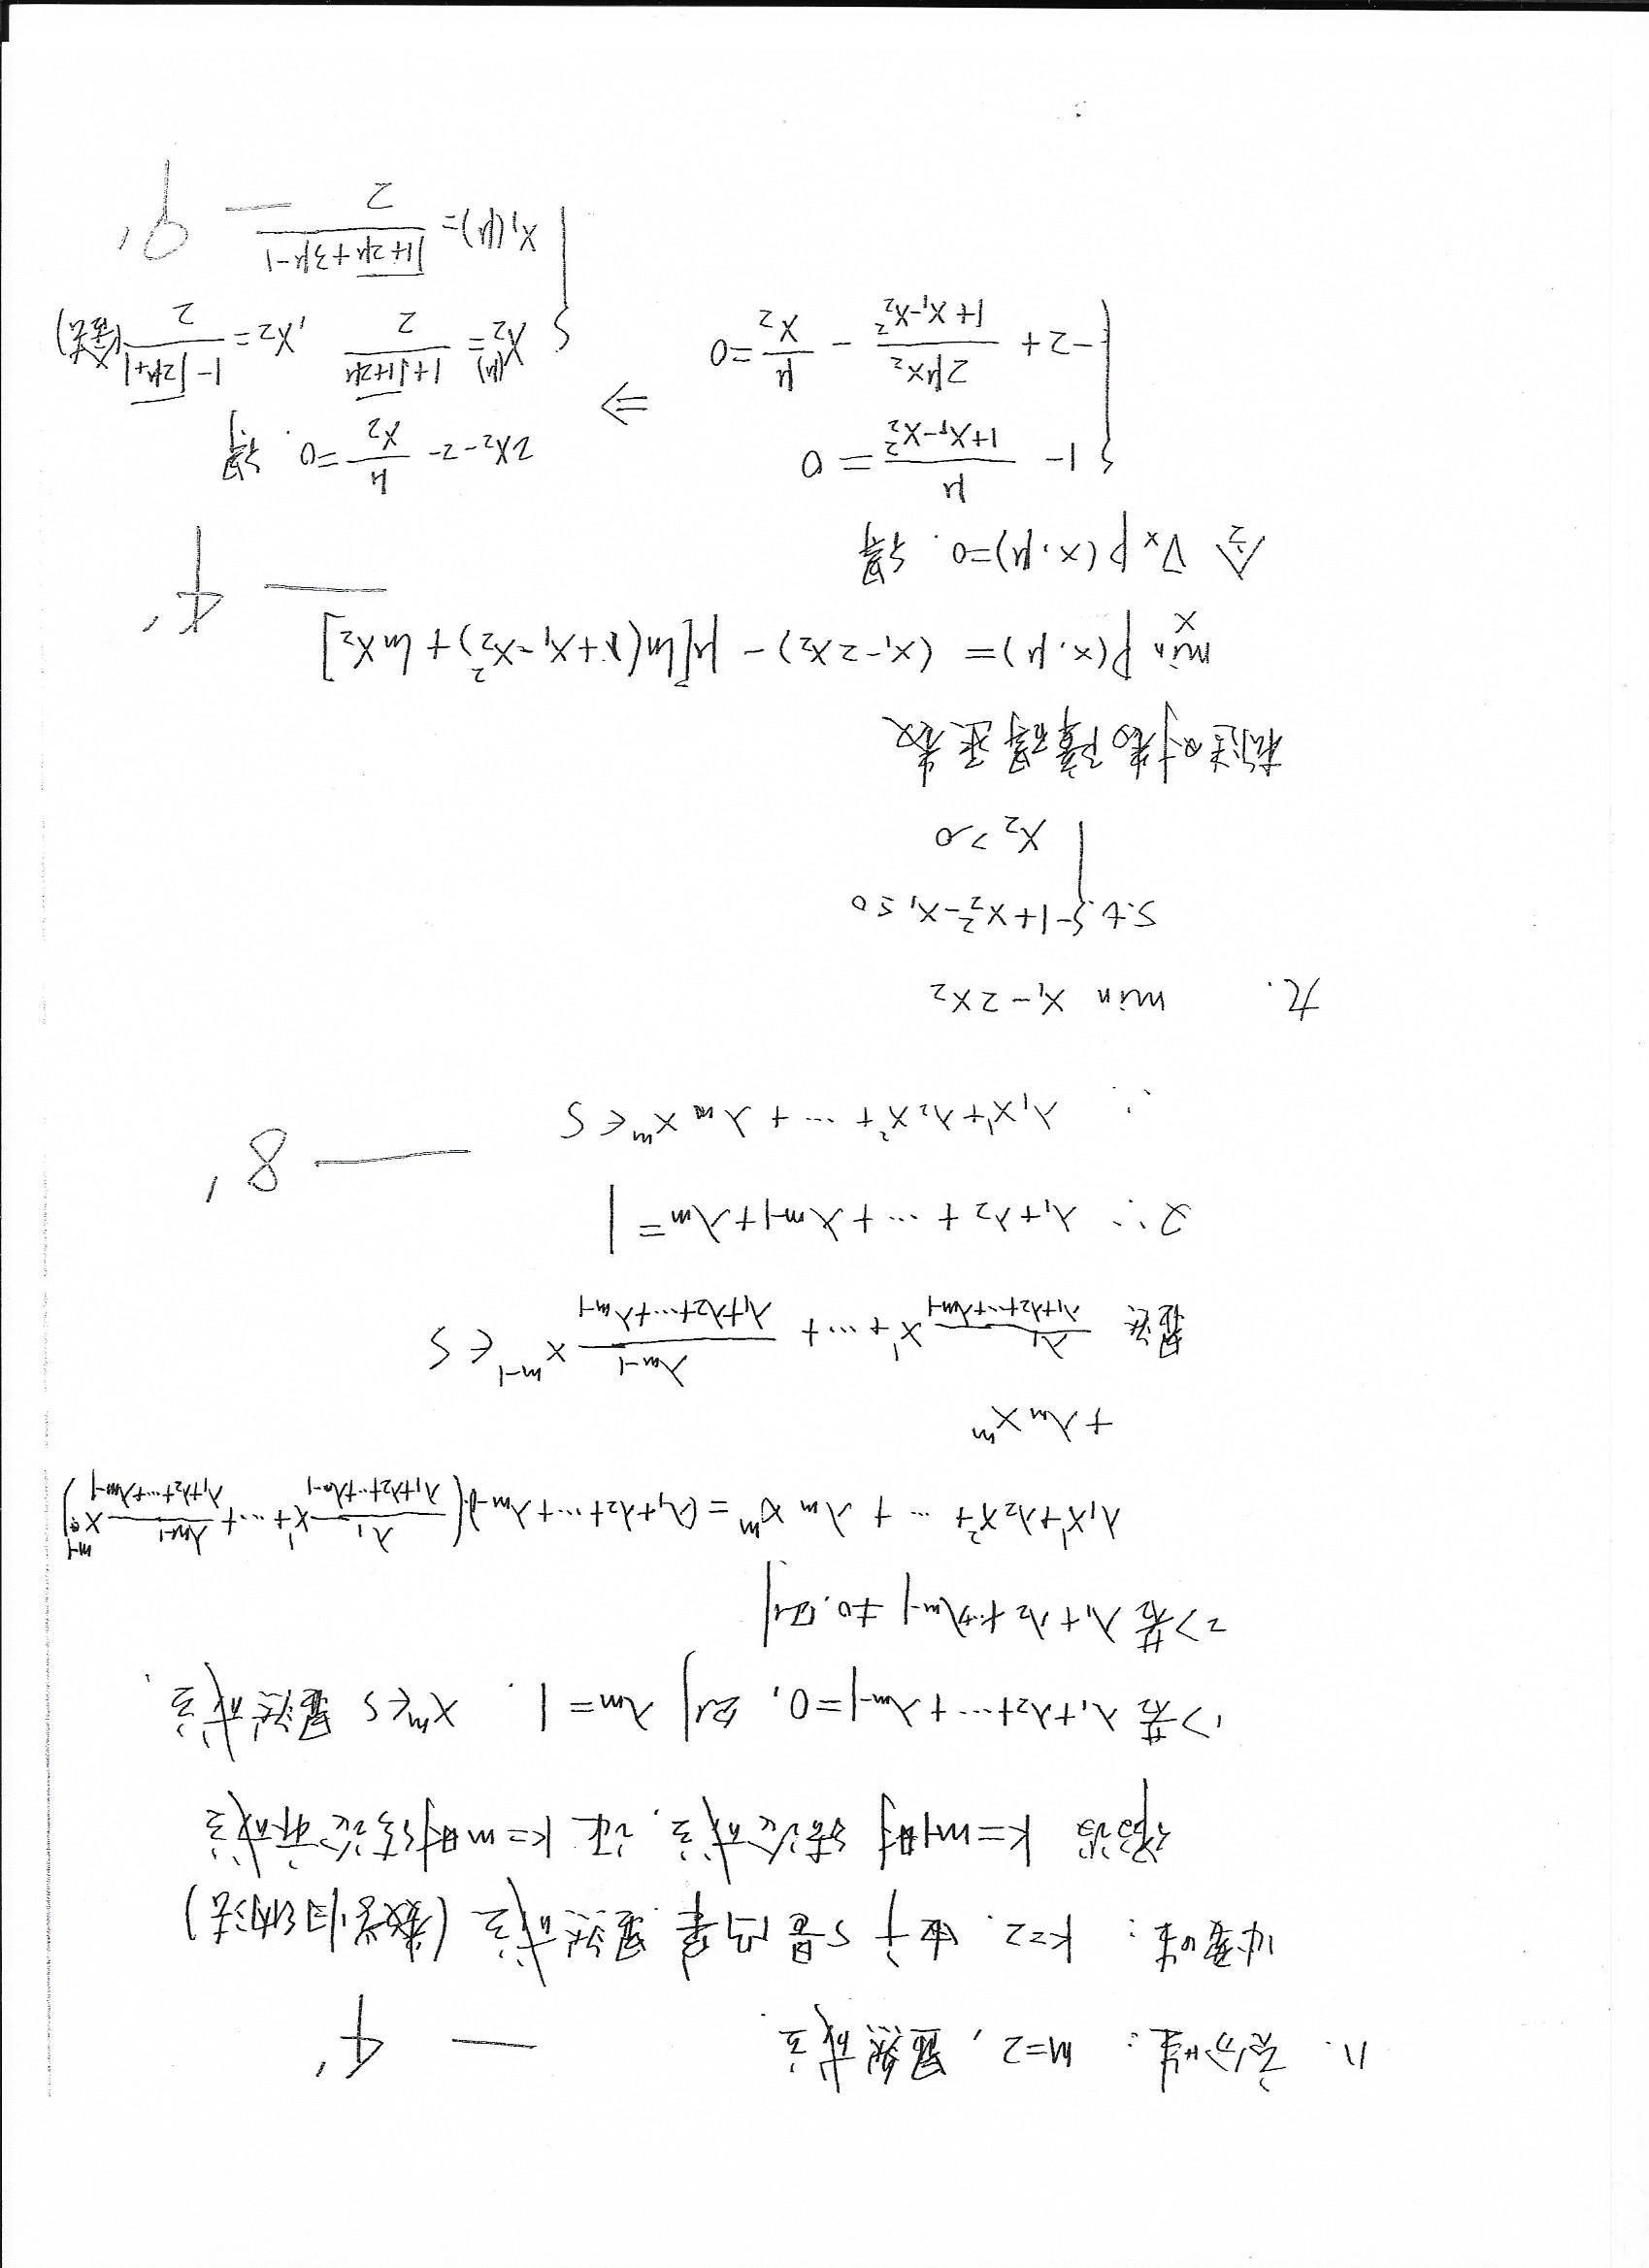 八. 充分性: m=2, 显然成立. — 4'
必要性: k=2. 由于S是凸集 显然成立 (数学归纳法)
假设 k=m-1时 结论成立. 证 k=m时结论亦成立
1> 若 λ₁+λ₂+⋯+λₘ₋₁=0, 则 λₘ=1. xᵐ∈S 显然成立.
2> 若 λ₁+λ₂+⋯+λₘ₋₁≠0, 则
λ₁x¹+λ₂x²+ ⋯ + λₘxᵐ = (λ₁+λ₂+⋯+λₘ₋₁)(λ₁/(λ₁+λ₂+⋯+λₘ₋₁) x¹+⋯+ λₘ₋₁/(λ₁+λ₂+⋯+λₘ₋₁) xᵐ⁻¹)
+ λₘxᵐ
显然 λ₁/(λ₁+λ₂+⋯+λₘ₋₁) x¹+⋯+ λₘ₋₁/(λ₁+λ₂+⋯+λₘ₋₁) xᵐ⁻¹ ∈ S
又∵ λ₁+λ₂+⋯+λₘ₋₁+λₘ=1
∴ λ₁x¹+λ₂x²+⋯+λₘxᵐ∈S — 8'
九. min x₁-2x₂
s.t. { -1+x₂²-x₁≤0
x₂>0
构造对数障碍函数
min P(x,μ)= (x₁-2x₂) - μ[ln(1+x₁-x₂²)+ln x₂] — 4'
x
令 ∇ₓP(x,μ)=0. 得
{ 1 - μ/(1+x₁-x₂²) = 0
-2 + 2μx₂/(1+x₁-x₂²) - μ/x₂ = 0
⇒ 2x₂-2-μ/x₂=0. 得
{ x₂(μ)= (1+√(1+2μ))/2 , x₂= (1-√(2μ+1))/2 (舍去)
x₁(μ)= (√(1+2μ)+3μ-1)/2 — 9'